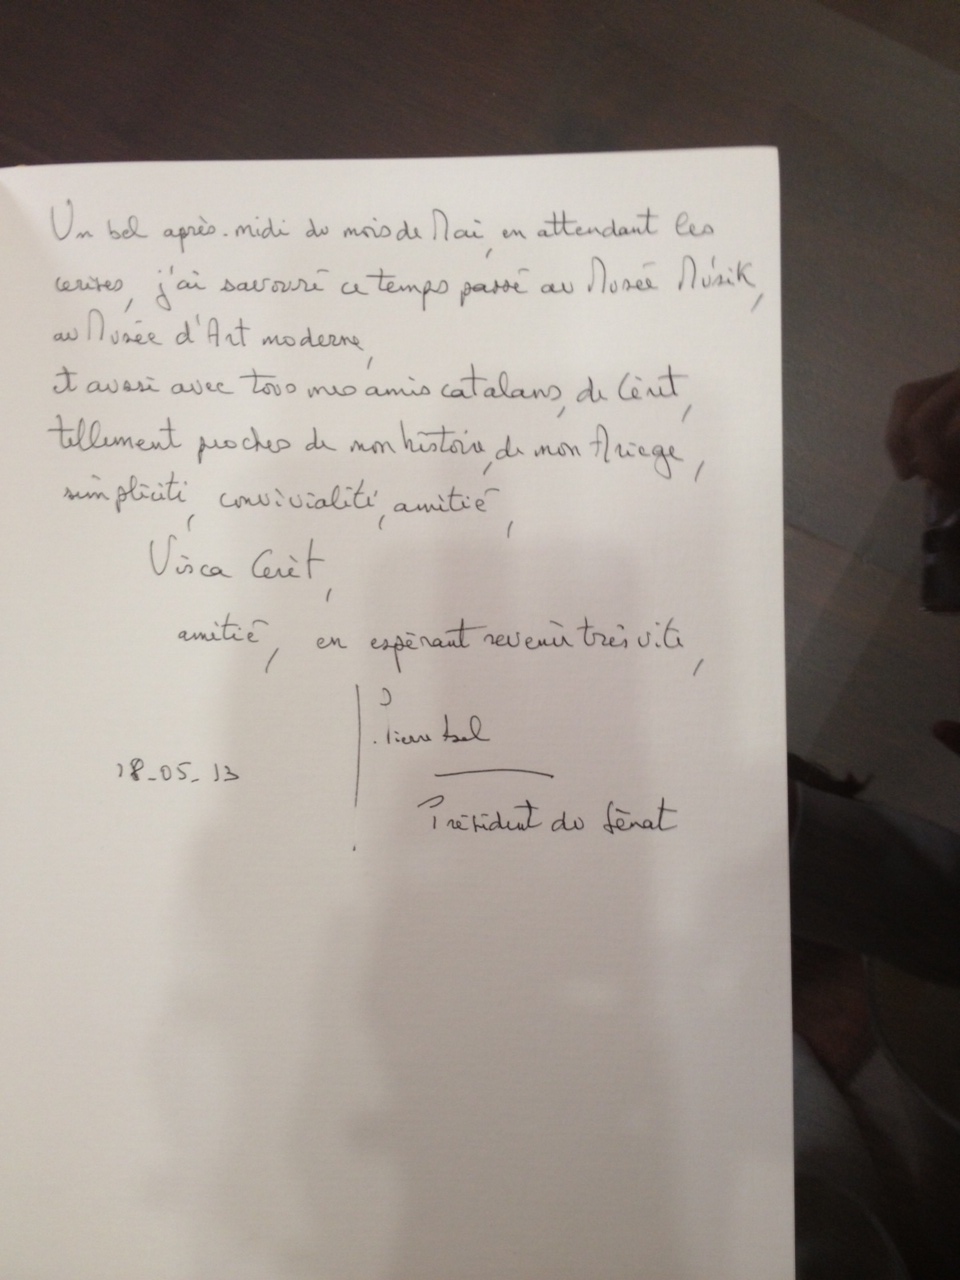 Un bel après-midi du mois de Mai, en attendant les
cerises, j'ai savouré ce temps passé au Musée Músik,
au Musée d'Art moderne,
et aussi avec tous mes amis catalans, de Céret,
tellement proches de mon histoire, de mon Ariege,
simplicité, convivialité, amitié,
Visca Cerèt,
amitié, en espérant revenir très vite,
Pierre Bel
18-05-13
Président du Sénat